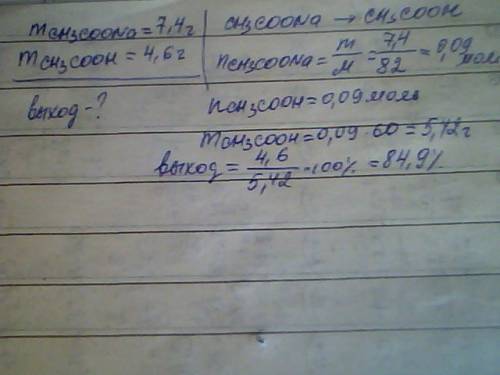 mCH₃COONa = 7,4г
mCH₃COOH = 4,6г
выход - ?
CH₃COONa → CH₃COOH
nCH₃COONa = m/M = 7,4/82 = 0,09 моль
nCH₃COOH = 0,09 моль
mCH₃COOH = 0,09 · 60 = 5,42г
выход = 4,6/5,42 · 100% = 84,9%